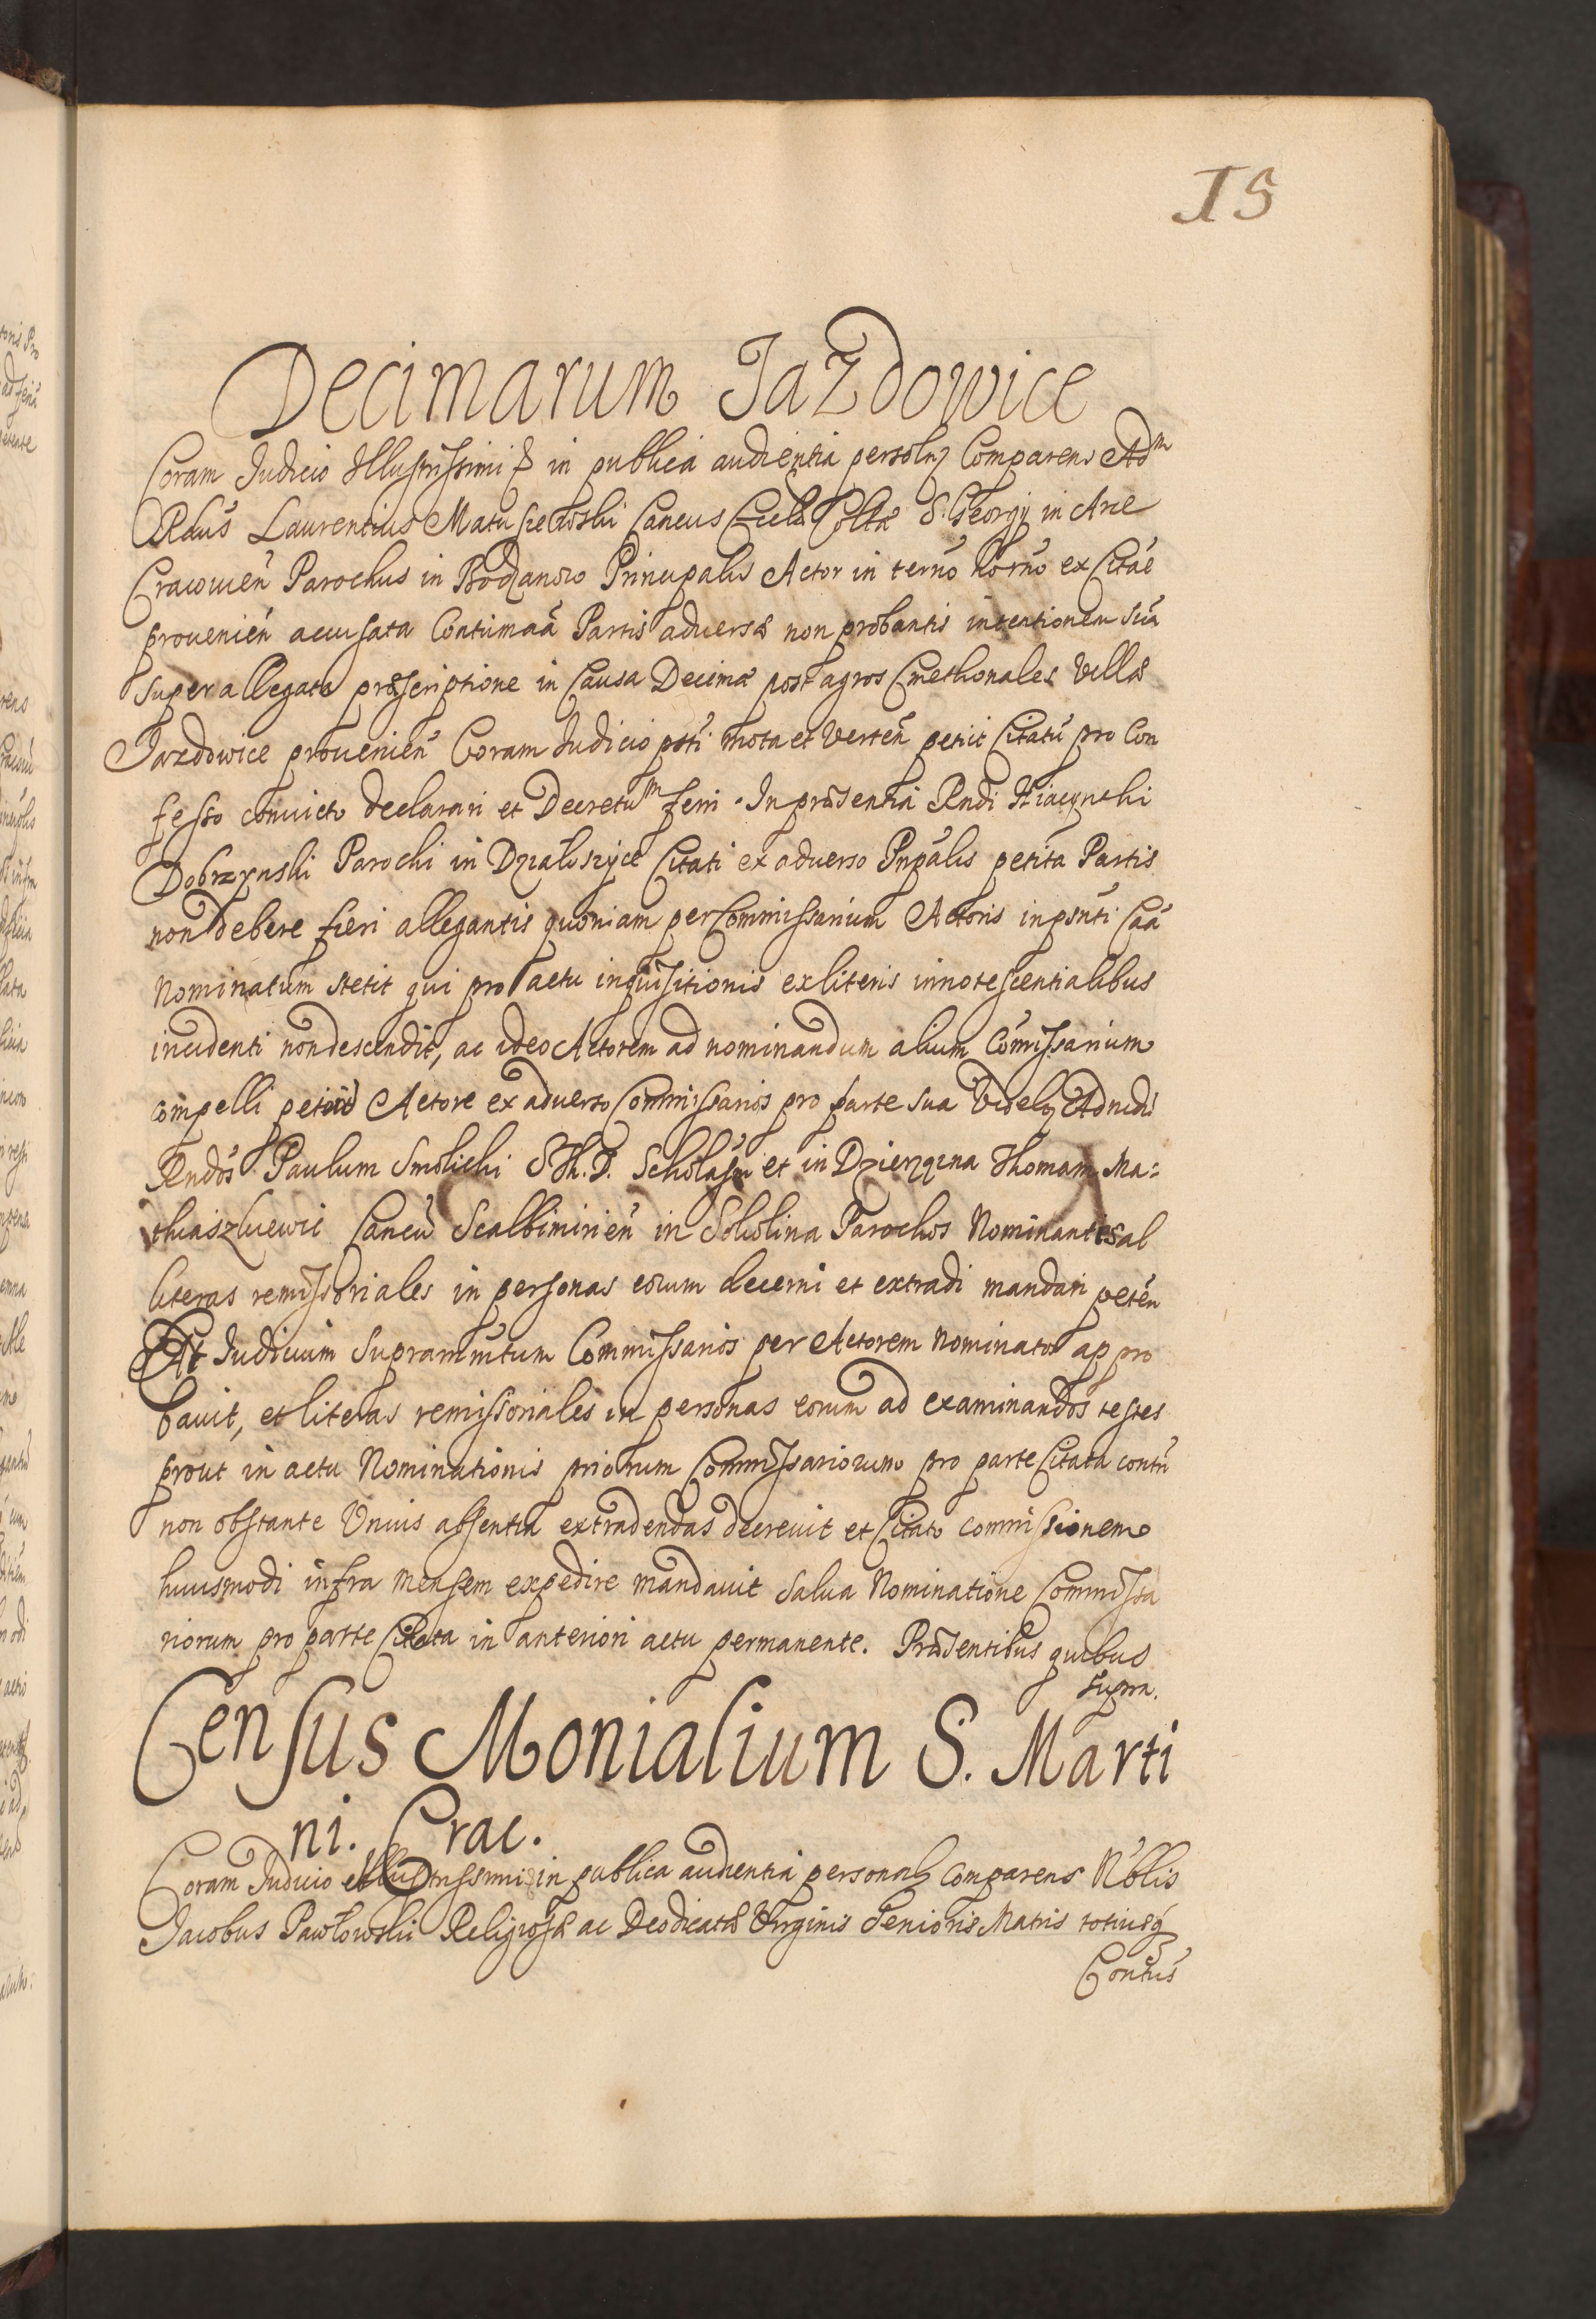 15
Decimarum Jazdowice
Coram Judicio Illustrissimi & in publica audientia personlr Comparens Adm
Rdus Laurentius Matuszewski Cancus Eccla Colltae S. Georgij in Arce
Cracouien Parochus in Bodzanow Principalis Actor in termo hodrno ex Citae
prouenien accusata Contumaa Partis aduersae non probantis intentionem sua
super allegata praescriptione in Causa Decimae post agros Cmethonales Villae
Jazdowice prouenien Coram Judicio psti mota et Verten petiit Citatu pro Con
fesso conuicto declarari et Decretum ferri. In praesentia Rndi Hiacynthi
Dobrzynski Parochi in Działoszyce Citati ex aduerso Pnpalis petita Partis
non debere fieri allegantis quoniam per Commissarium Actoris in psnti Caa
Nominatum stetit qui pro actu inquisitionis ex literis innotescentialibus
incidenti non descendit, ac ideo Actorem ad nominandum alium Comissarium
compelli Actore ex aduerso Commissarios pro parte sua Videlz Admdu
Rndos Paulum Smolichi S.Th.D. Scholasm et in Dzierzgna Thomam Ma:
thiaszkiewic Cancu Scalbimirien in Sokolina Parochos Nominante al
literas remissoriales in personas eorum decerni et extradi mandari peten
Et Judicium Supramntum Commissarios per Actorem Nominatos appro
bauit, et literas remissoriales in personas eorum ad examinandos testes
prout in actu Nominationis priorum Commissariorum pro parte Citata contn
non obstante Vnius absentia extradendas decreuit et Citato commissionem
huiusmodi infra Mensem expedire mandauit Salua Nominatione Commissa
riorum pro parte Citata in anteriori actu permanente. Praesentibus quibus
supra.
Census Monialium S. Marti
ni. Crac.
Coram Judicio Illustrissimi & in publica audientia personalr comparens Nblis
Jacobus Pawłowski Religiosae ac Deodicatae Virginis Senioris Matris totiusq
Contus